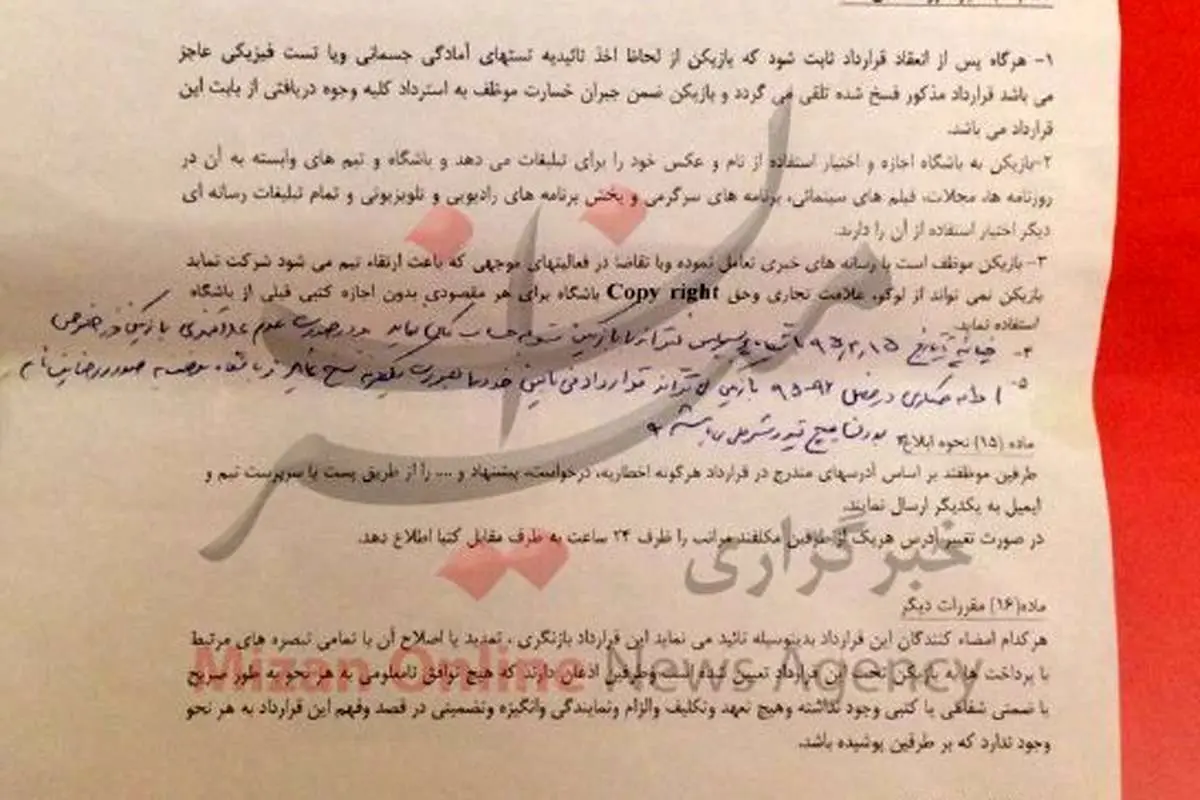 ۱- هرگاه پس از انعقاد قرارداد ثابت شود که بازیکن از لحاظ اخذ تائیدیه تستهای آمادگی جسمانی ویا تست فیزیکی عاجز
می باشد قرارداد مذکور فسخ شده تلقی می گردد و بازیکن ضمن جبران خسارت موظف به استرداد کلیه وجوه دریافتی از بابت این
قرارداد می باشد.
۲-بازیکن به باشگاه اجازه و اختیار استفاده از نام و عکس خود را برای تبلیغات می دهد و باشگاه و تیم های وابسته به آن در
روزنامه ها، مجلات، فیلم های سینمائی، برنامه های سرگرمی و پخش برنامه های رادیویی و تلویزیونی و تمام تبلیغات رسانه ای
دیگر اختیار استفاده از آن را دارند.
۳- بازیکن موظف است با رسانه های خبری تعامل نموده وبا تقاضا در فعالیتهای موجهی که باعث ارتقاء تیم می شود شرکت نماید
بازیکن نمی تواند از لوگو، علامت تجاری وحق Copy right باشگاه برای هر مقصودی بدون اجازه کتبی قبلی از باشگاه
استفاده نماید.
۴- چنانچه تا تاریخ ۹۵,۲,۱۵ پرسپولیس نتواند با بازیکن تسویه حساب کامل نماید و در صورت عدم بازیکن
۵- ادامه همکاری در فصل بازیکن می تواند قرارداد را بصورت یکطرفه فسخ نماید و باشگاه
بدون هیچ قید و شرطی
ماده (۱۵) نحوه ابلاغ
طرفین موظفند بر اساس آدرسهای مندرج در قرارداد هرگونه اخطاریه، درخواست، پیشنهاد و .... را از طریق پست یا سرپرست تیم و
ایمیل به یکدیگر ارسال نمایند.
در صورت تغییر آدرس هریک از طرفین مکلفند مراتب را ظرف ۲۴ ساعت به طرف مقابل کتبا اطلاع دهد.
خبرگزاری
میزان
ماده(۱۶) مقررات دیگر
هرکدام امضاء کنندگان این قرارداد بدینوسیله تائید می نماید این قرارداد بازنگری ، تمدید یا اصلاح آن با تمامی تبصره های مرتبط
با پرداخت ها به بازیکن تحت این قرارداد تعیین کننده است وطرفین اذعان دارند که هیچ توافق نامعلومی به هر نحو به طور صریح
Mizan Online News Agency
یا ضمنی شفاهی یا کتبی وجود نداشته وهیچ تعهد وتکلیف والزام ونمایندگی وانگیزه وتضمینی در قصد وفهم این قرارداد به هر نحو
وجود ندارد که بر طرفین پوشیده باشد.